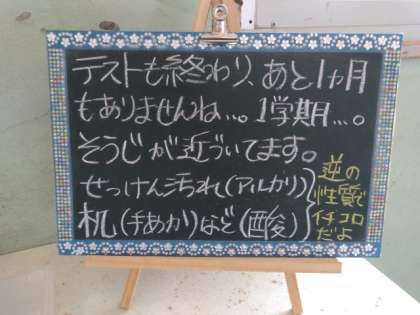 テストも終わり、あと1ヵ月
もありませんね…。1学期…。
そうじが近づいてます。
せっけん汚れ(アルカリ)
机(手あか)など(酸)
逆の
性質で
イチコロ
だよ